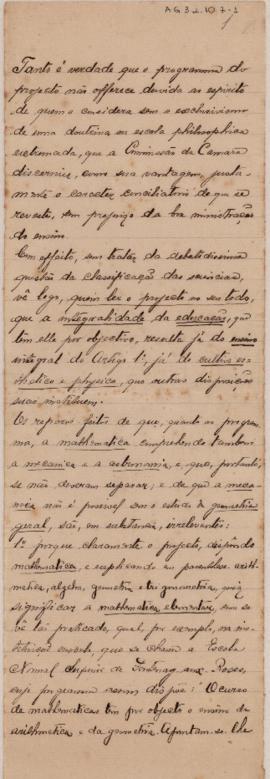 AG 3.2.10.7-1
1
Tanto é verdade que o programma do
projecto não offerece duvida ao espirito
de quem o considera sem o exclusivismo
de uma doutrina ou escola philosophica
extremada, que a Commissão da Camara
discerniu, com sua vantagem, justa-
mente o caracter conciliatorio de que se
reveste, sem prejuizo da boa ministração
do ensino.
Com effeito, sem tratar da debatidissima
questão da classificação das sciencias,
vê logo, quem ler o projecto no seu todo,
que a integralidade da educação, que
tem elle por objectivo, resulta já do ensino
integral do Artigo 1º, já da cultura es-
thetica e physica, que outras disposições
suas instituem.
Os reparos feitos de que, quanto ao program-
ma, a mathematica comprehende tambem
a mecanica e a astronomia e, que, portanto,
se não deveram separar; e de que a meca-
nica não é possivel sem o estudo da geometria
geral, são, em substancia, irrelevantes:
1º porque claramente o projecto, dispondo
mathematica, e explicando em parenthese arith-
metica, algebra, geometria e trigonometria, quiz
significar a mathematica elementar, como se
vê lá praticado, qual, por exemplo, na ins-
tituição modelo, que se chama a Escola
Normal Superior de Fontenay-aux-Roses,
cujo programma assim dispõe: O curso
de mathematicas tem por objecto o ensino da
arithmetica e da geometria. Ajuntam-se lhe